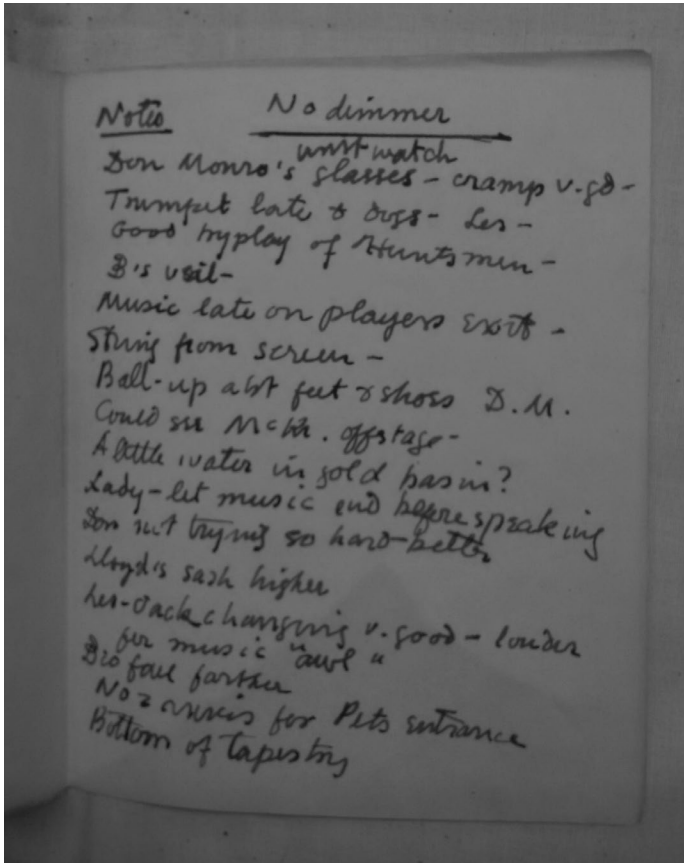 Notes No dimmer
wrist watch
Don Monro's glasses - cramp v. gd -
Trumpet late & dogs - Les -
Good byplay of Huntsmen -
B's veil -
Music late on players exit -
String from screen -
Ball-up abt feet & shoes D.M.
Could see McKr. offstage -
A little water in gold basin?
Lady - let music end before speaking
Don not trying so hard - better
Lloyd's sash higher
Les - Jack changing v. good - louder
for music "awl"
fall farther
No 2 for Pets entrance
Bottom of tapestry